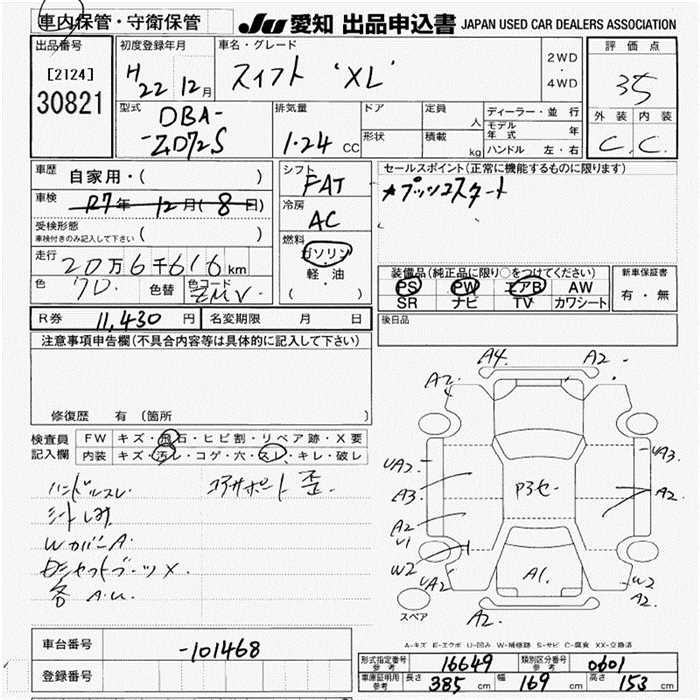 車内保管・守衛保管 JU 愛知 出品申込書 JAPAN USED CAR DEALERS ASSOCIATION
出品番号 初度登録年月 車名・グレード 評価点
[2124] H22年12月 スイフト 'XL' 2WD・4WD 35
30821 型式 DBA-ZD72S 排気量 1.24 CC ドア 定員 人 ディーラー・並行 外装 内装
形状 積載 kg モデル年式 年 C. C.
ハンドル 左・右
車歴 自家用・( ) シフト FAT セールスポイント(正常に機能するものに限ります)
車検 R7年 12月(8日) 冷房 AC ★プッシュスタート
受検形態 車検付きのみ記入して下さい ( ) 燃料 ガソリン・軽・油 ( )
走行 20万6千616km 装備品(純正品に限り○をつけてください) 新車保証書
色 色替 色コード ZMV PS PW エアB AW 有・無
SR ナビ TV カワシート
R券 11,430円 名変期限 月 日 後日品
注意事項申告欄(不具合内容等は具体的に記入して下さい)
修復歴 有 (箇所
検査員記入欄 FW キズ・飛石・ヒビ割・リペア跡・X要
内装 キズ・汚レ・コゲ・穴・スレ・キレ・破レ
ハンドルスレ コアサポート歪
シートしみ
WカバーA
各 A.U.
A4. A2
A2
UA2 UA3
A3 P3セ A2
A2
U1
W2 UA2 A1. W2 A2
スペア A2
A-キズ E-エクボ U-凹み W-補修跡 S-サビ C-腐食 XX-交換済
車台番号 -101468 形式指定番号 参考 16649 類別区分番号 参考 0601
登録番号 車庫証明用 参考 長さ 385 cm 幅 169 cm 高さ 153 cm